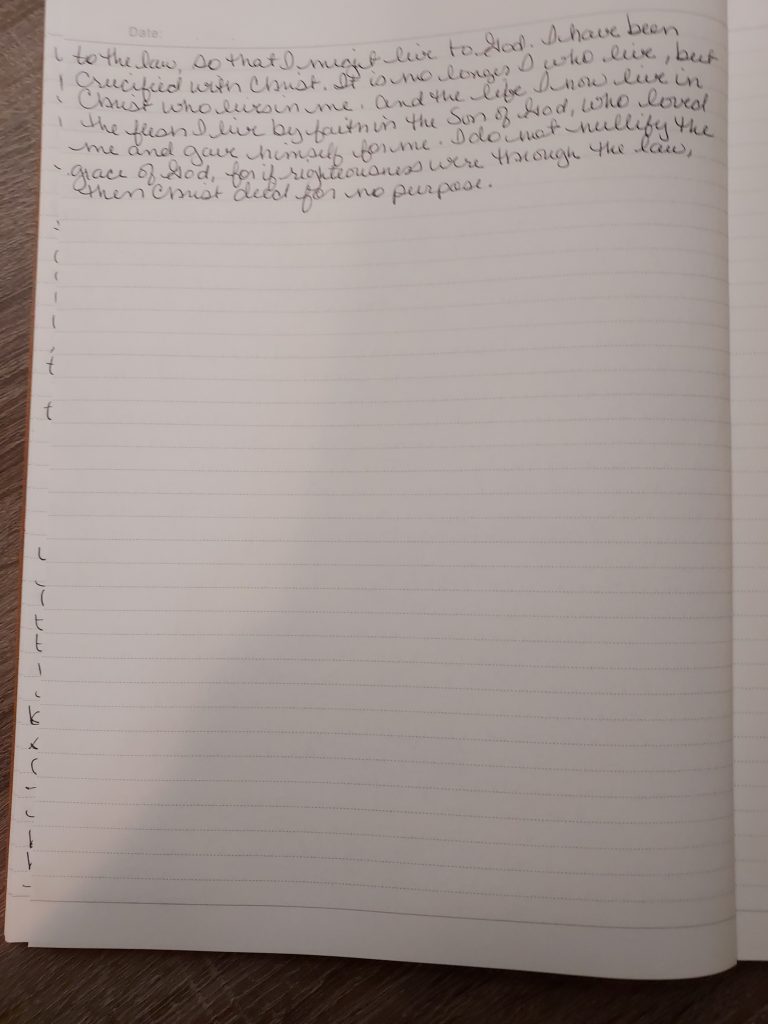 Date:
to the law, so that I might live to God. I have been
Crucified with Christ. It is no longer I who live, but
Christ who lives in me. And the life I now live in
the flesh I live by faith in the Son of God, who loved
me and gave himself for me. I do not nullify the
grace of God, for if righteousness were through the law,
then Christ died for no purpose.